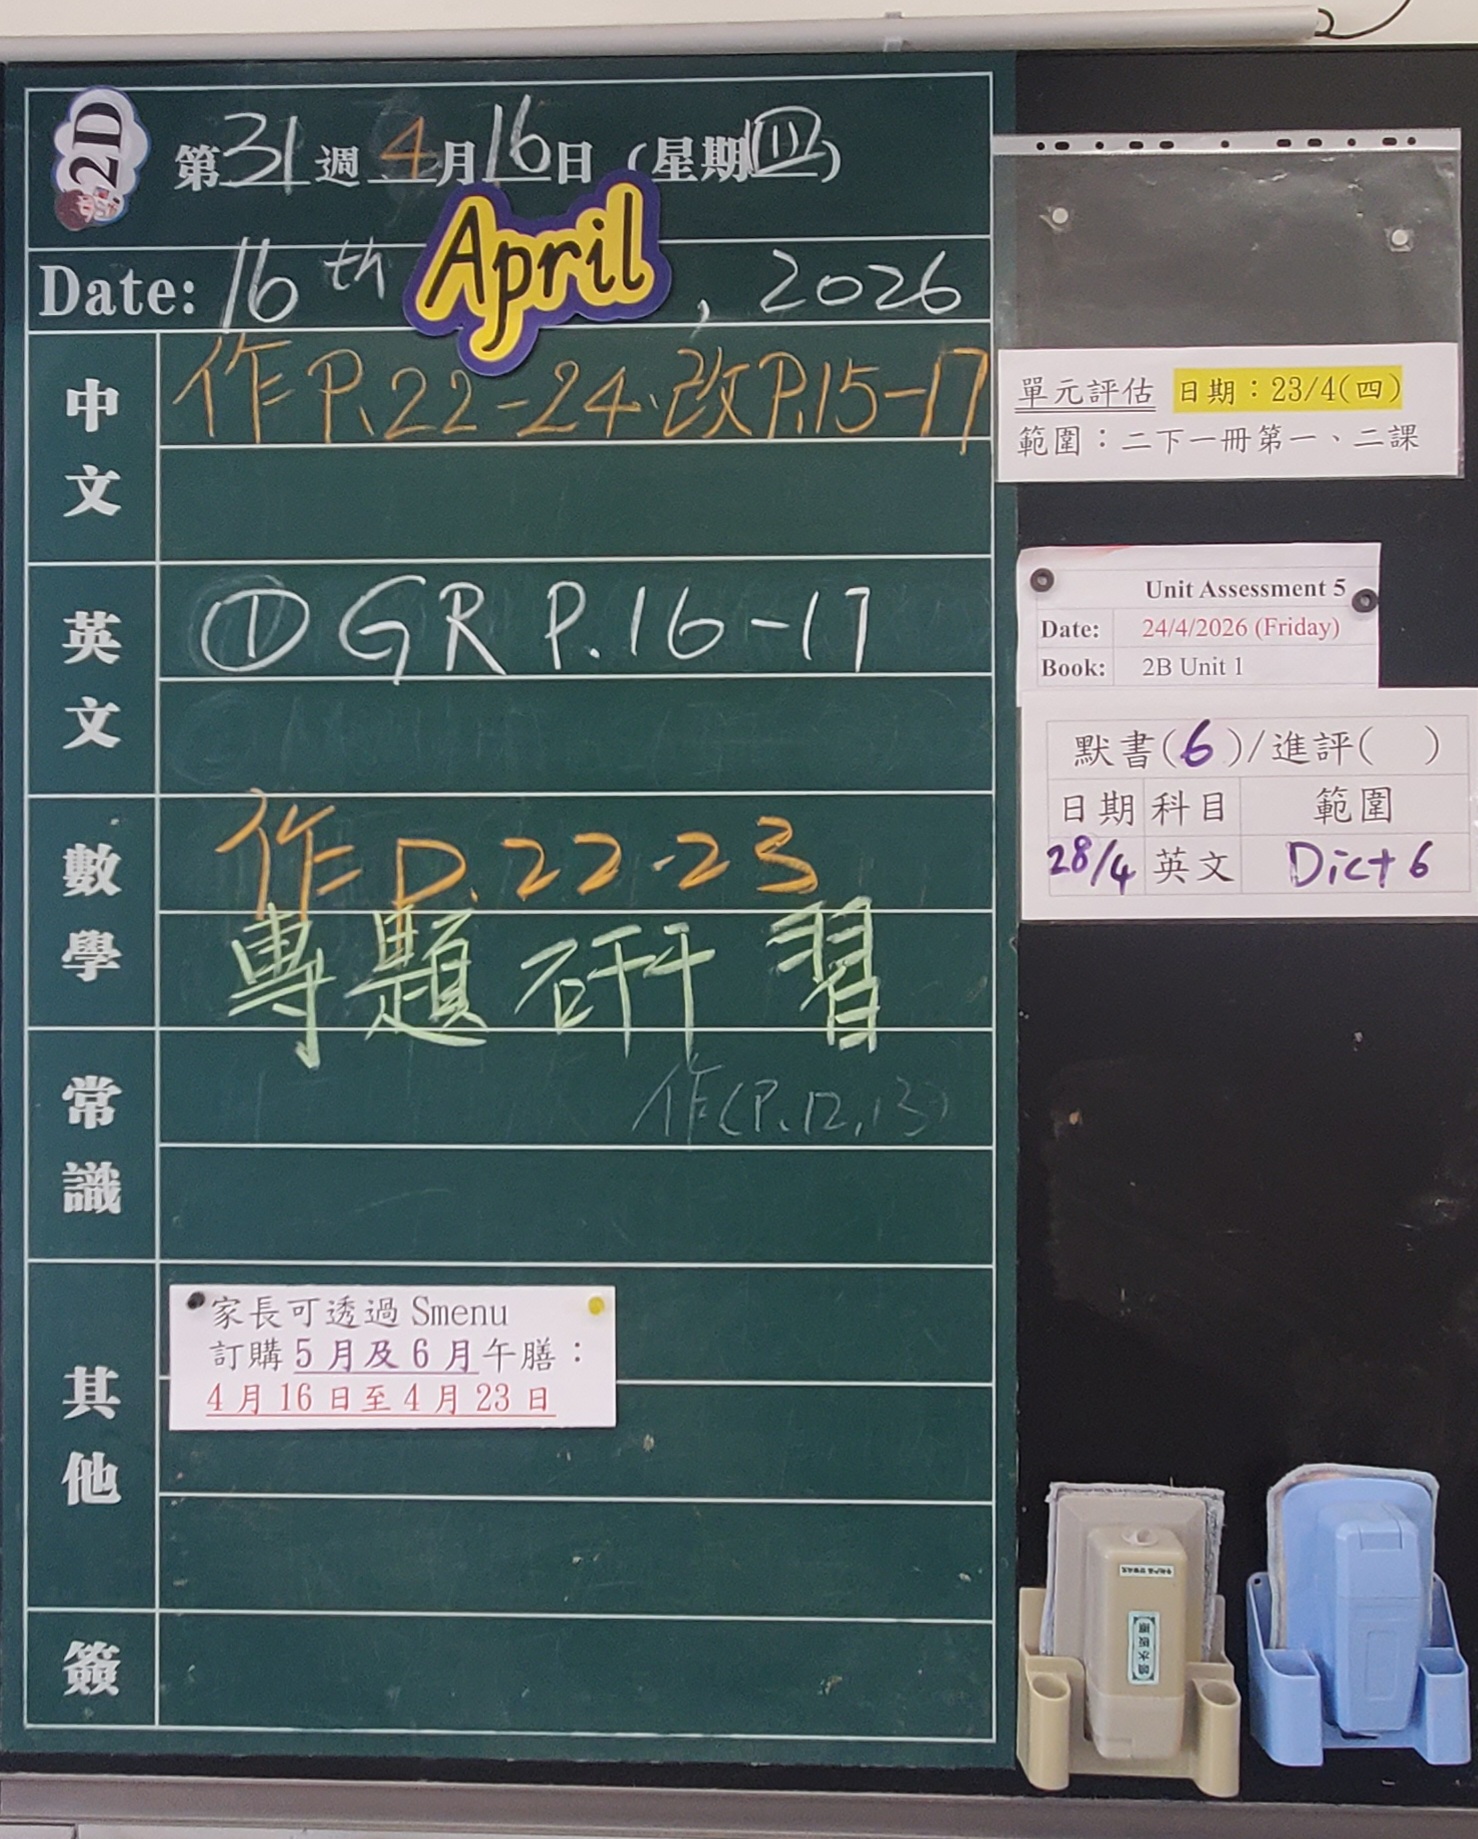 2D
第31週4月16日(星期四)
Date: 16th April, 2026
中文
作P.22-24、改P.15-17
英文
① GR P.16-17
數學
作P.22-23
專題研習
常識
作(P.12,13)
其他
家長可透過 Smenu
訂購5月及6月午膳：
4月16日至4月23日
簽
單元評估 日期：23/4(四)
範圍：二下一冊第一、二課
Unit Assessment 5
Date: 24/4/2026 (Friday)
Book: 2B Unit 1
默書(6)/進評( )
日期 科目 範圍
28/4 英文 Dict 6